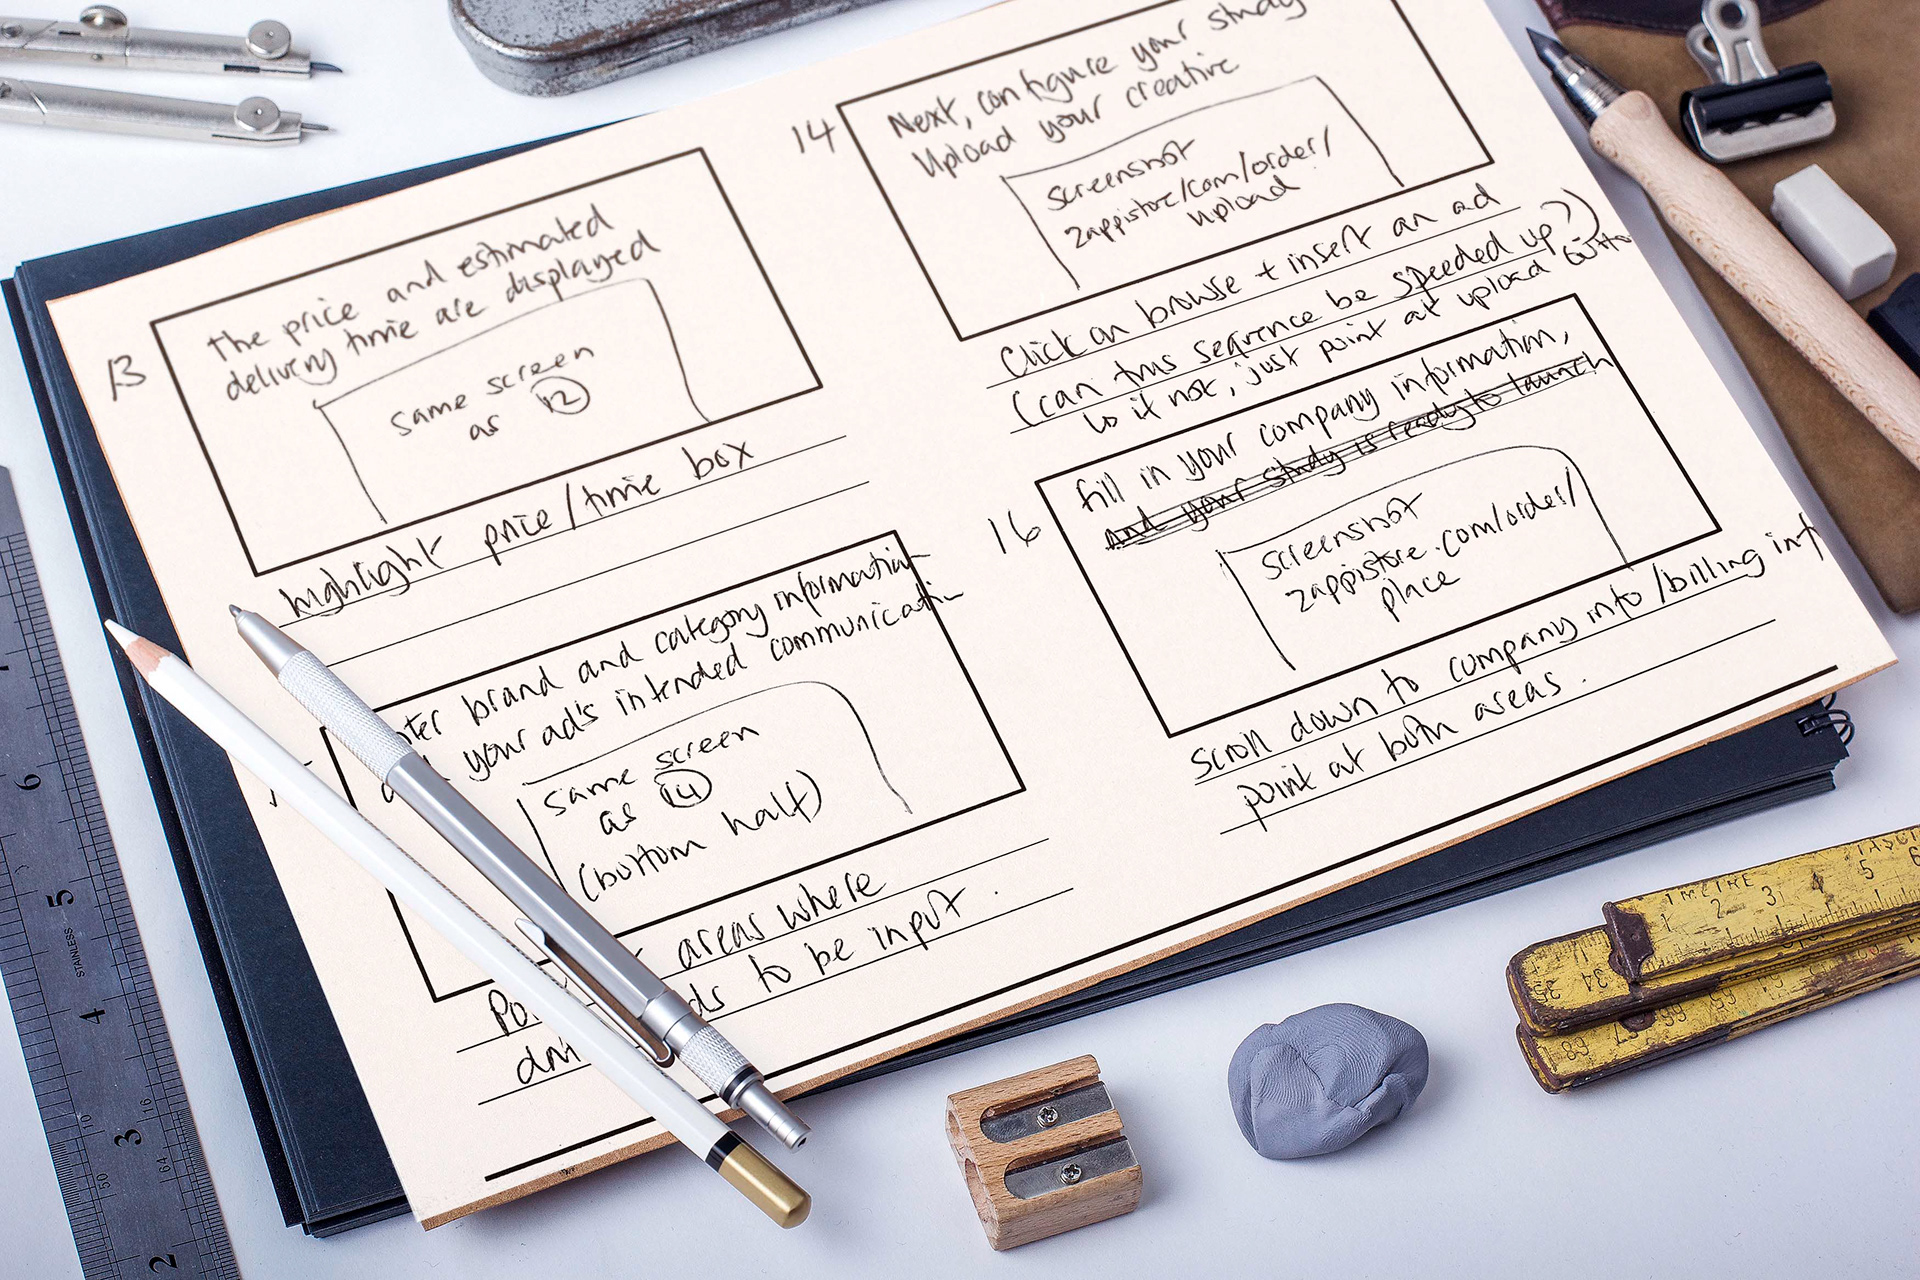 13
the price and estimated
delivery time are displayed
same screen
as 12
highlight price/time box
14
Next, configure your study
Upload your creative
screenshot
zappistore/com/order/
upload
Click on browse + insert an ad
(can this sequence be speeded up?)
↳ if not, just point at upload butto
enter brand and category information
your ad's intended communicati
same screen
as 14
(bottom half)
areas where
to be input.
16
fill in your company information,
and your study is ready to launch
screenshot
zappistore.com/order/
place
scroll down to company info/billing inf
point at both areas.
STAINLESS
6
5
4
3
2
10
16
50
64
1 METRE
1 2 3 4 5 6
35 34
68 67 66 65